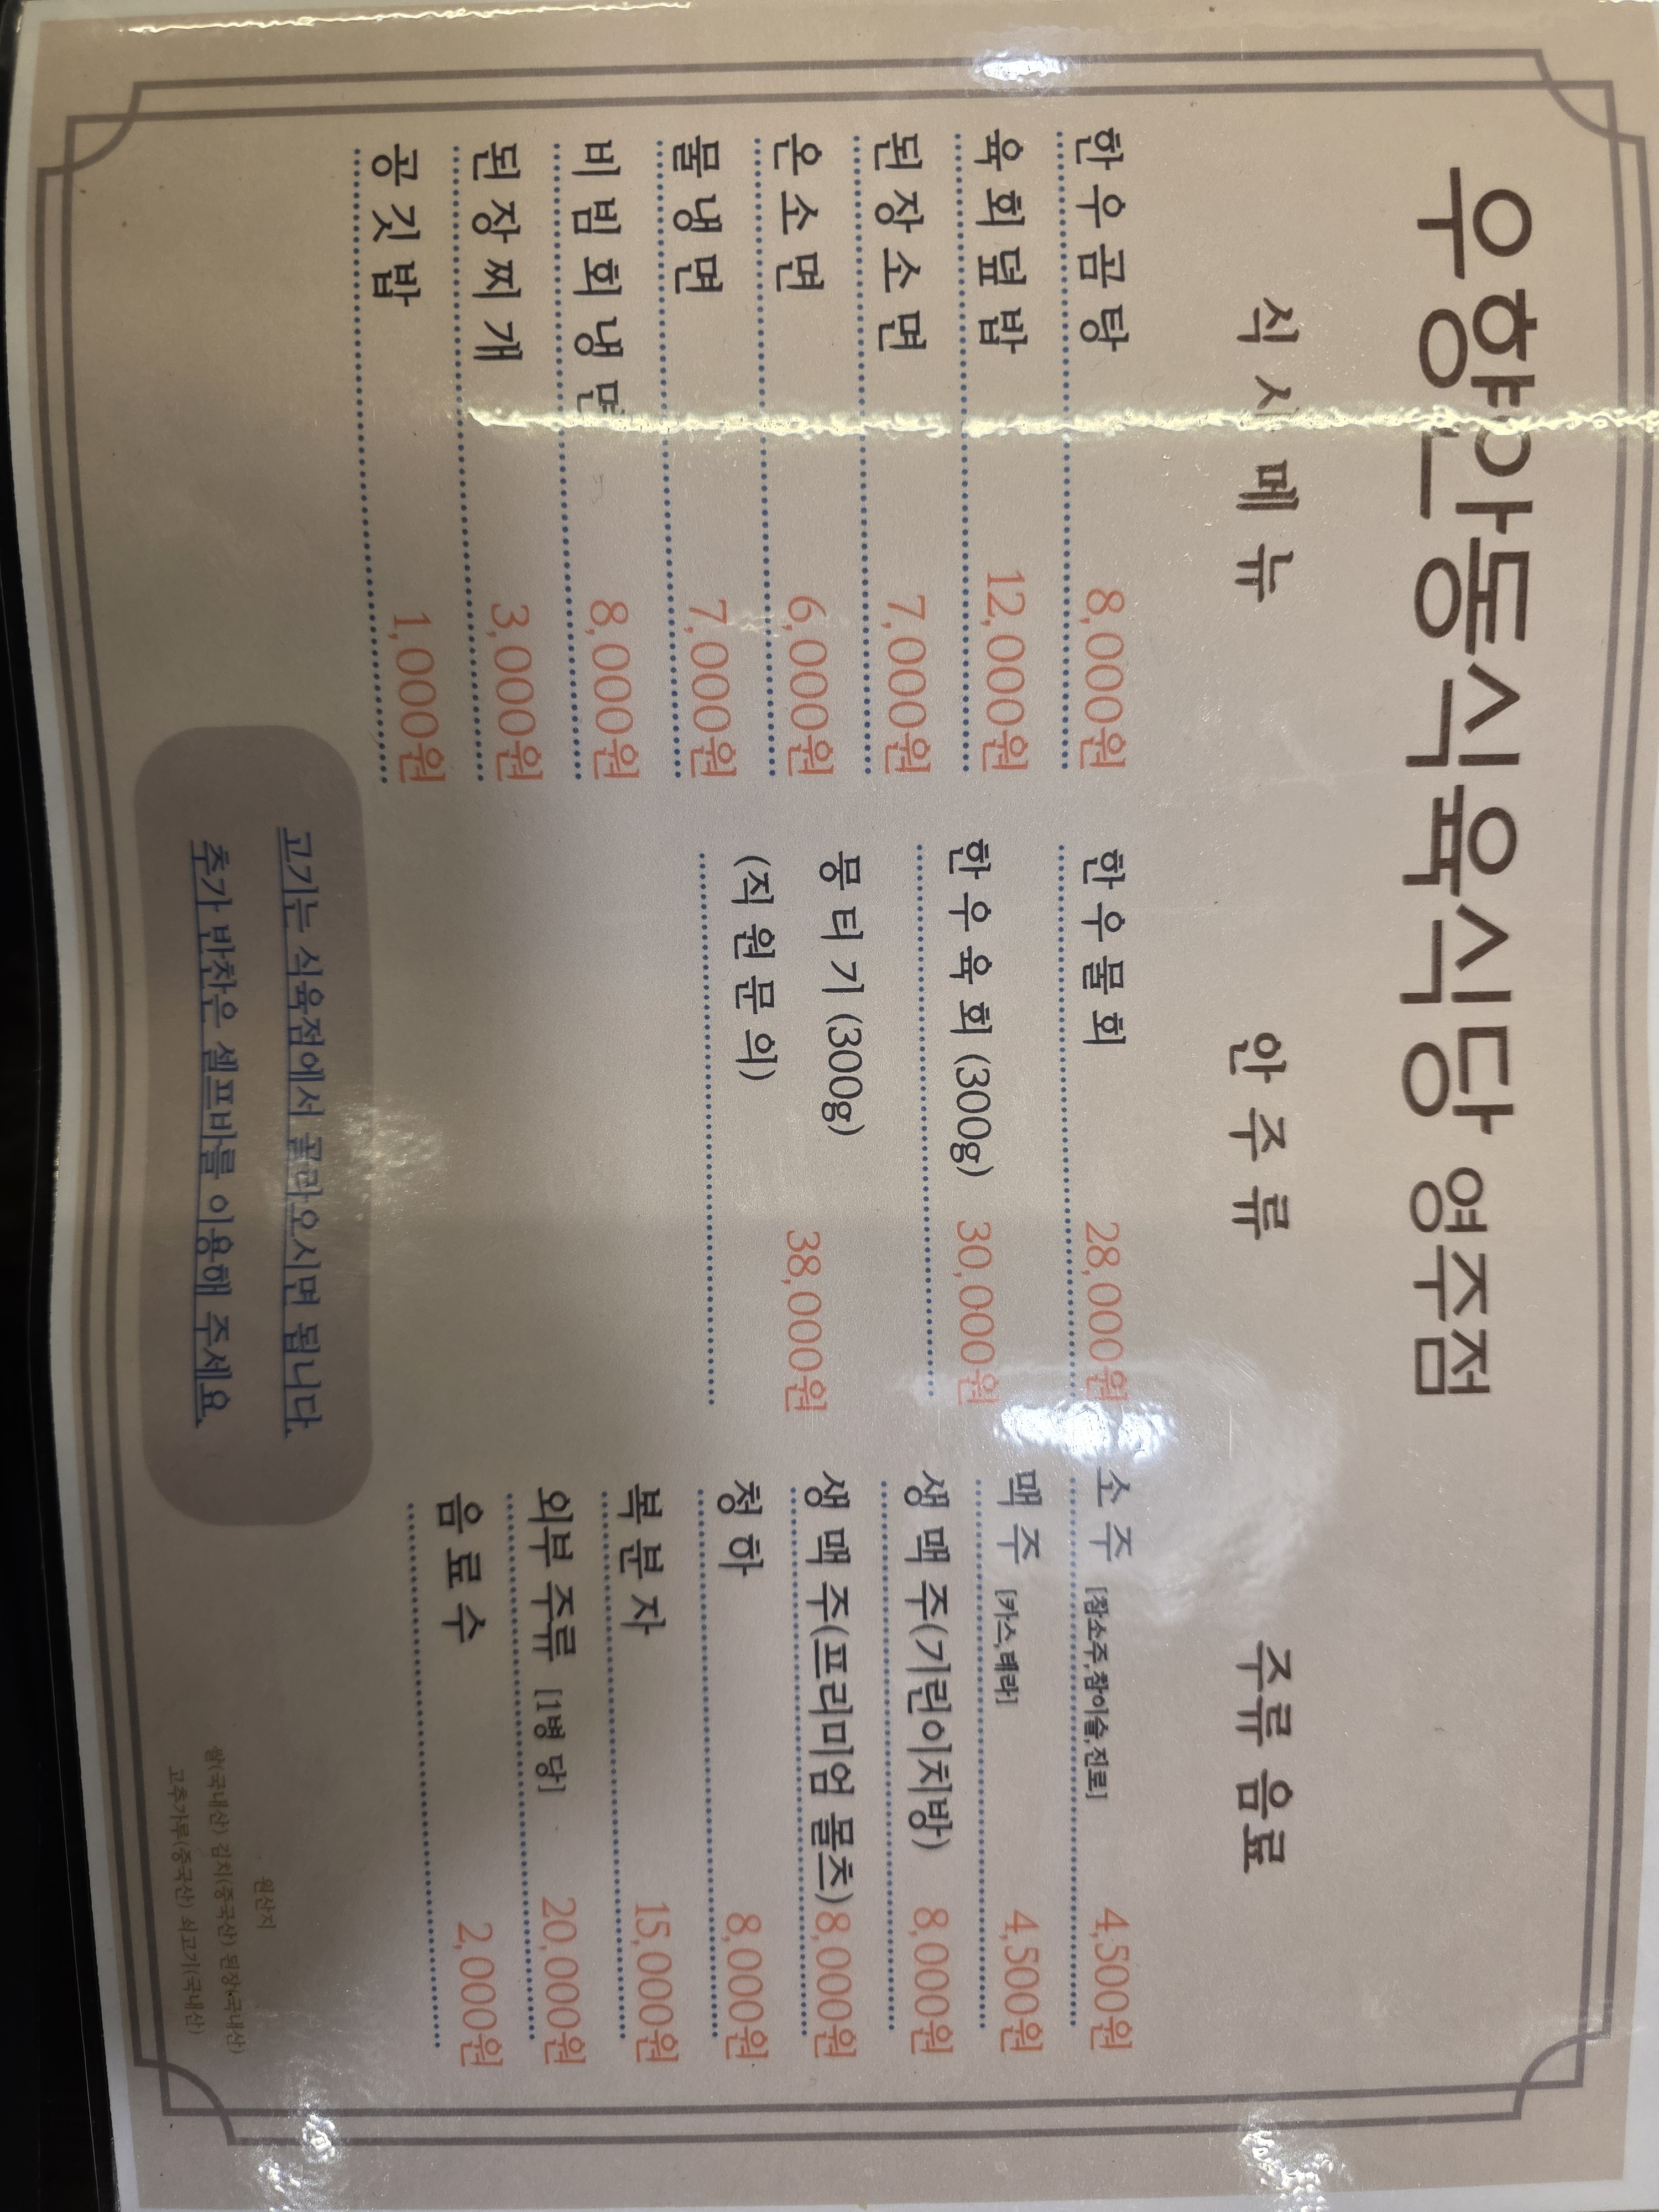 우향안동식육식당 영주점
식사메뉴
한우곰탕 8,000원
육회덮밥 12,000원
된장소면 7,000원
온소면 6,000원
물냉면 7,000원
비빔회냉면 8,000원
된장찌개 3,000원
공깃밥 1,000원
안주류
한우물회 28,000원
한우육회 (300g) 30,000원
뭉티기 (300g) 38,000원
(직원문의)
주류 음료
소주 [참소주,참이슬,진로] 4,500원
맥주 [카스,테라] 4,500원
생맥주(기린이치방) 8,000원
생맥주(프리미엄 몰츠) 8,000원
청하 8,000원
복분자 15,000원
외부 주류 [1병 당] 20,000원
음료수 2,000원
고기는 식육점에서 골라오시면 됩니다.
추가 반찬은 셀프바를 이용해 주세요.
원산지
쌀(국내산) 김치(중국산) 된장(국내산)
고추가루(중국산) 쇠고기(국내산)